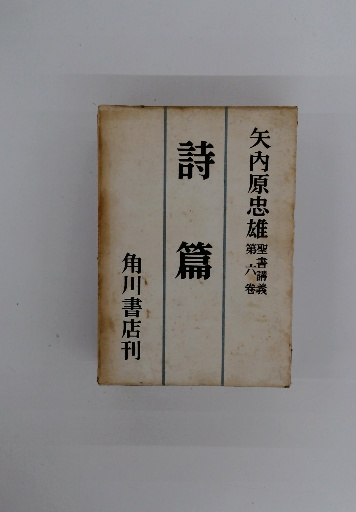 矢内原忠雄
聖書講義
第六巻
詩篇
角川書店刊